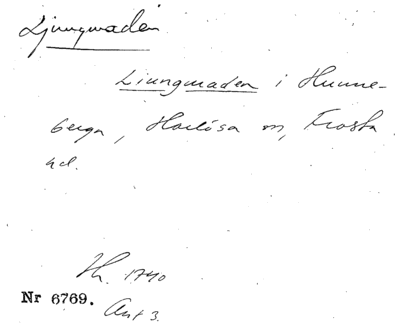 Ljungmaden
Ljungmaden i Hunne-
berga, Harlösa sn, Frosta
hd.
Lh. 1740
Nr 6769.
Ant 3.